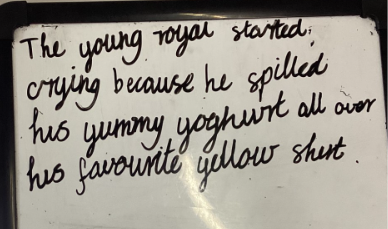 The young royal started
crying because he spilled
his yummy yoghurt all over
his favourite yellow shirt.